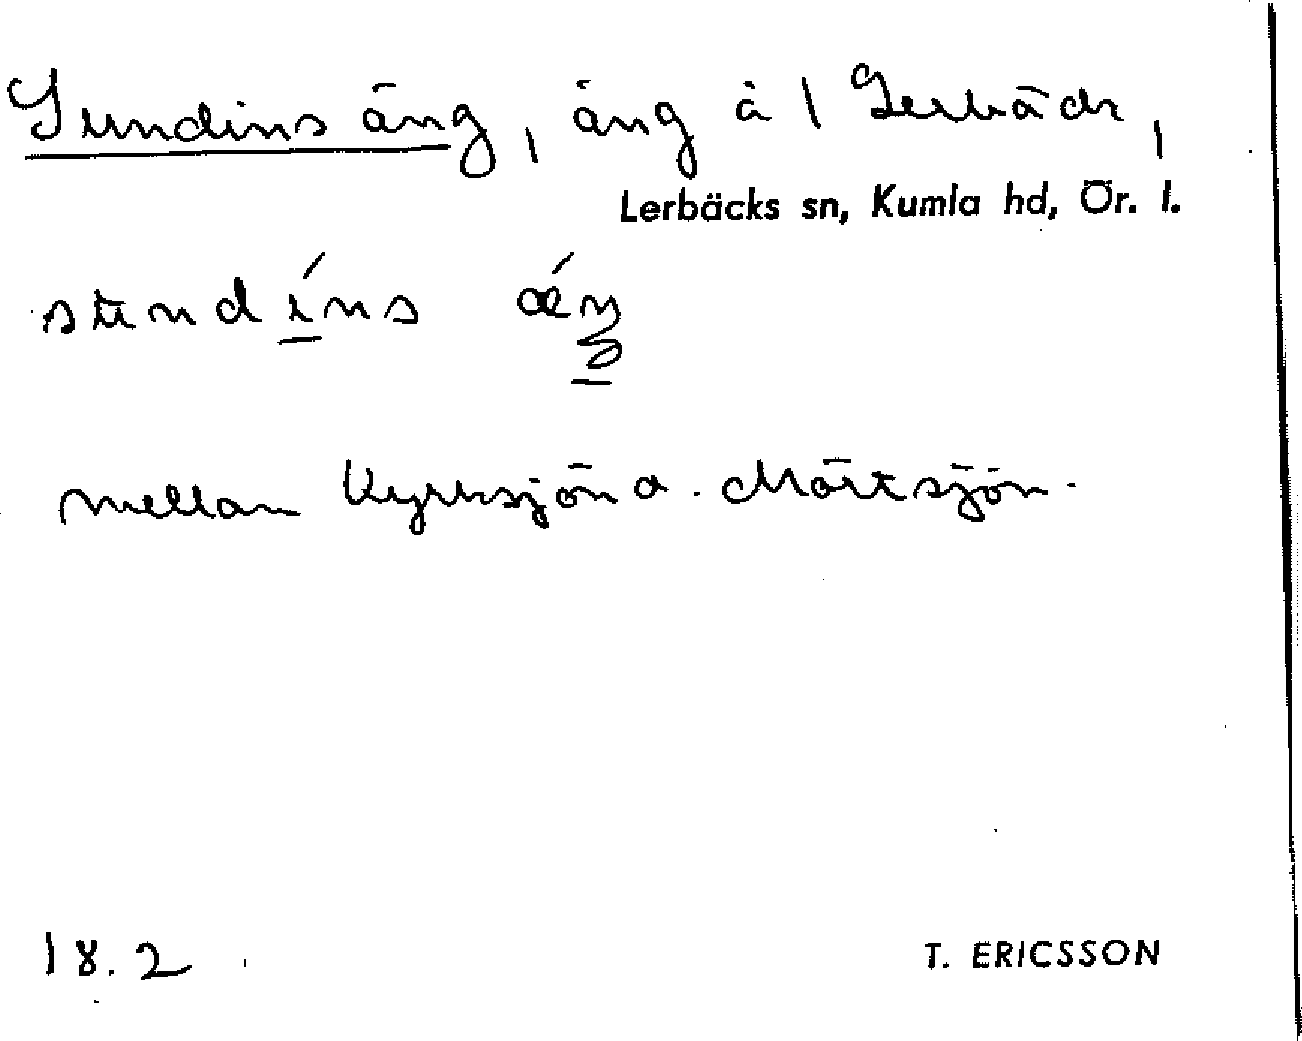 Sundins äng, äng å 1 Lerbäck,
Lerbäcks sn, Kumla hd, Ör. l.
mellan Kyrksjön o. Mörtsjön.
18.2
T. ERICSSON